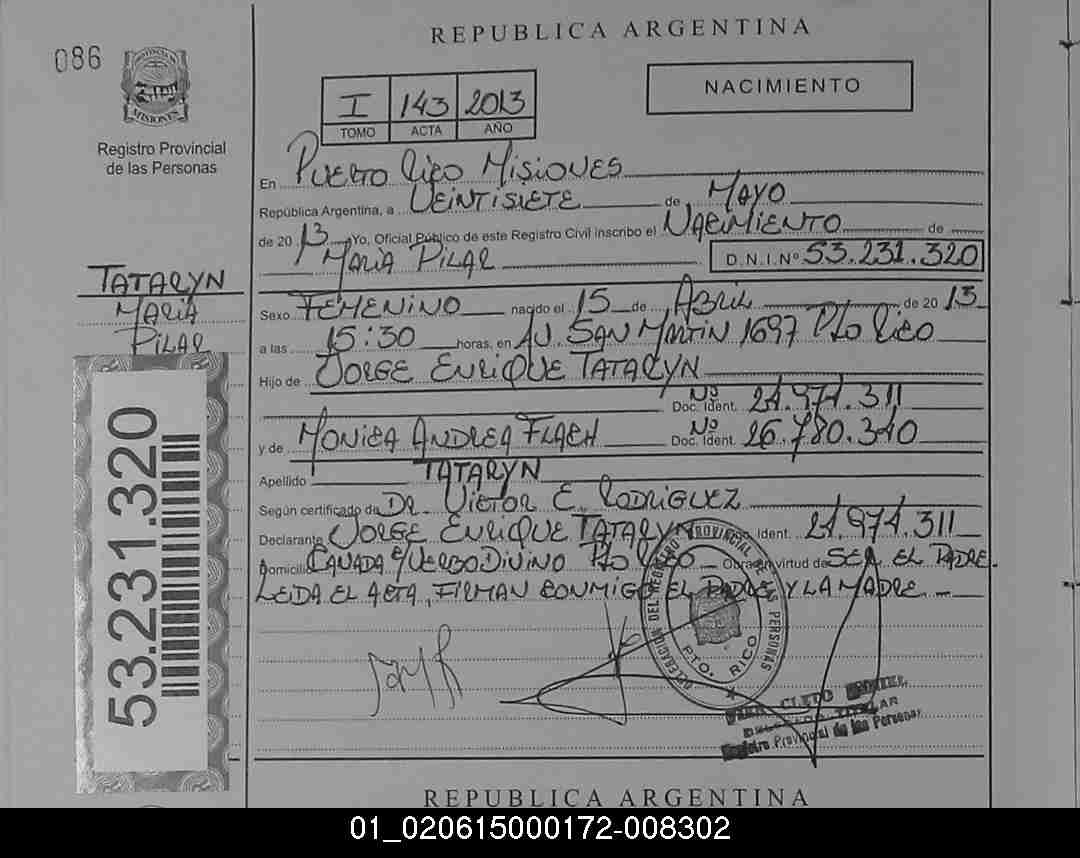 REPUBLICA ARGENTINA
086
NACIMIENTO
I 143 2013
TOMO ACTA AÑO
PROVINCIA DE MISIONES
Registro Provincial
de las Personas
En PUERTO RICO MISIONES
República Argentina, a VEINTISIETE de MAYO
de 2013 Yo, Oficial Público de este Registro Civil inscribo el NACIMIENTO de
MARIA PILAR D.N.I.Nº 53.231.320
TATARYN
MARIA
PILAR
Sexo FEMENINO nacido el 15 de ABRIL de 2013
a las 15:30 horas, en AV. SAN MARTIN 1697 Pto RICO
Hijo de JORGE ENRIQUE TATARYN
Nº
Doc. Ident. 21.971.311
y de MONICA ANDREA FLACH Nº Doc. Ident. 26.780.340
Apellido TATARYN
Según certificado de DR. VICTOR E. RODRIGUEZ
Declarante JORGE ENRIQUE TATARYN Ident. 21.971.311
Domicilio CANADA e/ VERBO DIVINO Pto RICO Obra en virtud de SER EL PADRE.
LEIDA EL ACTA, FIRMAN CONMIGO EL PADRE Y LA MADRE.
53.231.320
DELEGACION DEL REGISTRO PROVINCIAL DE LAS PERSONAS
PTO. RICO
CLETO
TITULAR
Registro Provincial de las Personas
REPUBLICA ARGENTINA
01_020615000172-008302